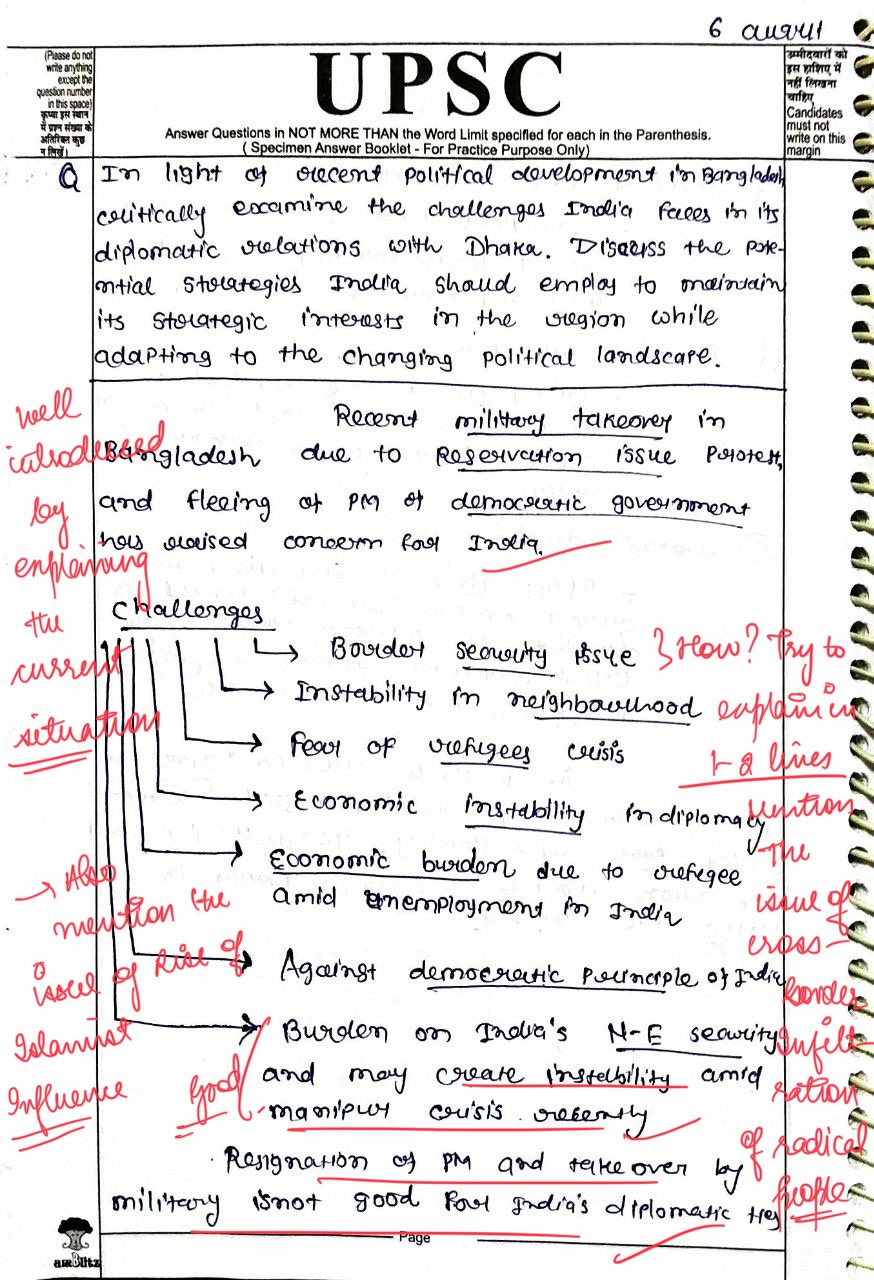 6 august
(Please do not
write anything
except the
question number
in this space)
कृपया इस स्थान
में प्रश्न संख्या के
अतिरिक्त कुछ
न लिखें।
UPSC
Answer Questions in NOT MORE THAN the Word Limit specified for each in the Parenthesis.
( Specimen Answer Booklet - For Practice Purpose Only)
उम्मीदवारों को
इस हाशिए में
नहीं लिखना
चाहिए
Candidates
must not
write on this
margin
Q In light of recent political development in Bangladesh
critically examine the challenges India faces in its
diplomatic relations with Dhaka. Discuss the pote-
ntial strategies India should employ to maintain
its strategic interests in the region while
adapting to the changing political landscape.
well
introduced
by
explaining
the
current
situation
Recent military takeover in
Bangladesh due to Reservation issue Protest,
and fleeing of PM of democratic government
has raised concern for India.
Challenges
Border security issue
Instability in neighbourhood
Fear of refugees crisis
Economic instability in diplomacy
Economic burden due to refugee
amid unemployment in India
Against democratic principle of India
Burden on India's N-E security
and may create instability amid
manipur crisis recently
} How? Try to
explain in
1-2 lines
mention
the
issue of
cross-
border
Infilt-
ration
of radical
people
→ Also
mention the
issue of Rise of
Islamist
Influence
Good
Resignation of PM and takeover by
military is not good for India's diplomatic ties
Page
amBlitz